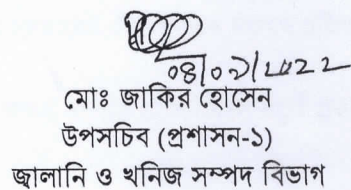 08/09/2022
মোঃ জাকির হোসেন
উপসচিব (প্রশাসন-১)
জ্বালানি ও খনিজ সম্পদ বিভাগ